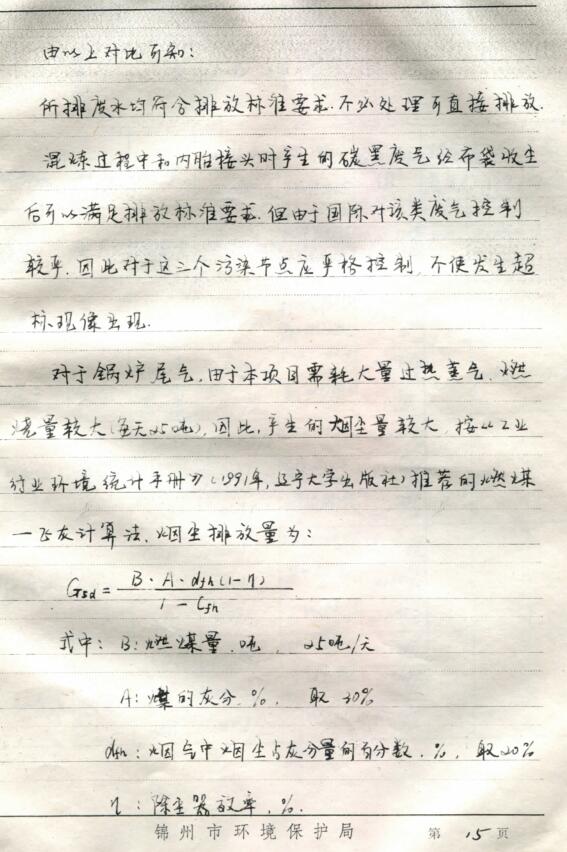 由以上对比可知:
所排废水均符合排放标准要求.不必处理可直接排放.
混炼过程中和内胎接头时产生的碳黑废气经布袋收尘
后可以满足排放标准要求.但由于国际对该类废气控制
较严.因此对于这三个污染节点应严格控制,不使发生超
标现像出现.
对于锅炉尾气,由于本项目需耗大量过热蒸气,燃
烧量较大(每天25吨),因此,产生的烟尘量较大,按《工业
行业环境统计手册》(1991年,辽宁大学出版社)推荐的燃煤
一飞灰计算法,烟尘排放量为:
Gsd = B·A·dfh(1-η) / 1-Cfh
式中: B:燃煤量,吨, 25吨/天
A:煤的灰分,%, 取30%
dfh:烟气中烟尘占灰分量的百分数,%, 取20%
η:除尘器效率,%.
锦州市环境保护局 第15页